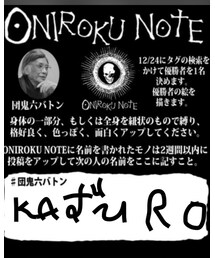 ONIROKU NOTE
12/24にタグの検索を
かけて優勝者を1名
決めます。
優勝者の絵を
描きます。
団鬼六バトン
ONIROKU NOTE
身体の一部分、もしくは全身を紐状のもので縛り、
格好良く、色っぽく、面白くアップしてください。
ONIROKU NOTEに名前を書かれたモノは2週間以内に
投稿をアップして次の人の名前をここに記すこと。
#団鬼六バトン
KAずU RO